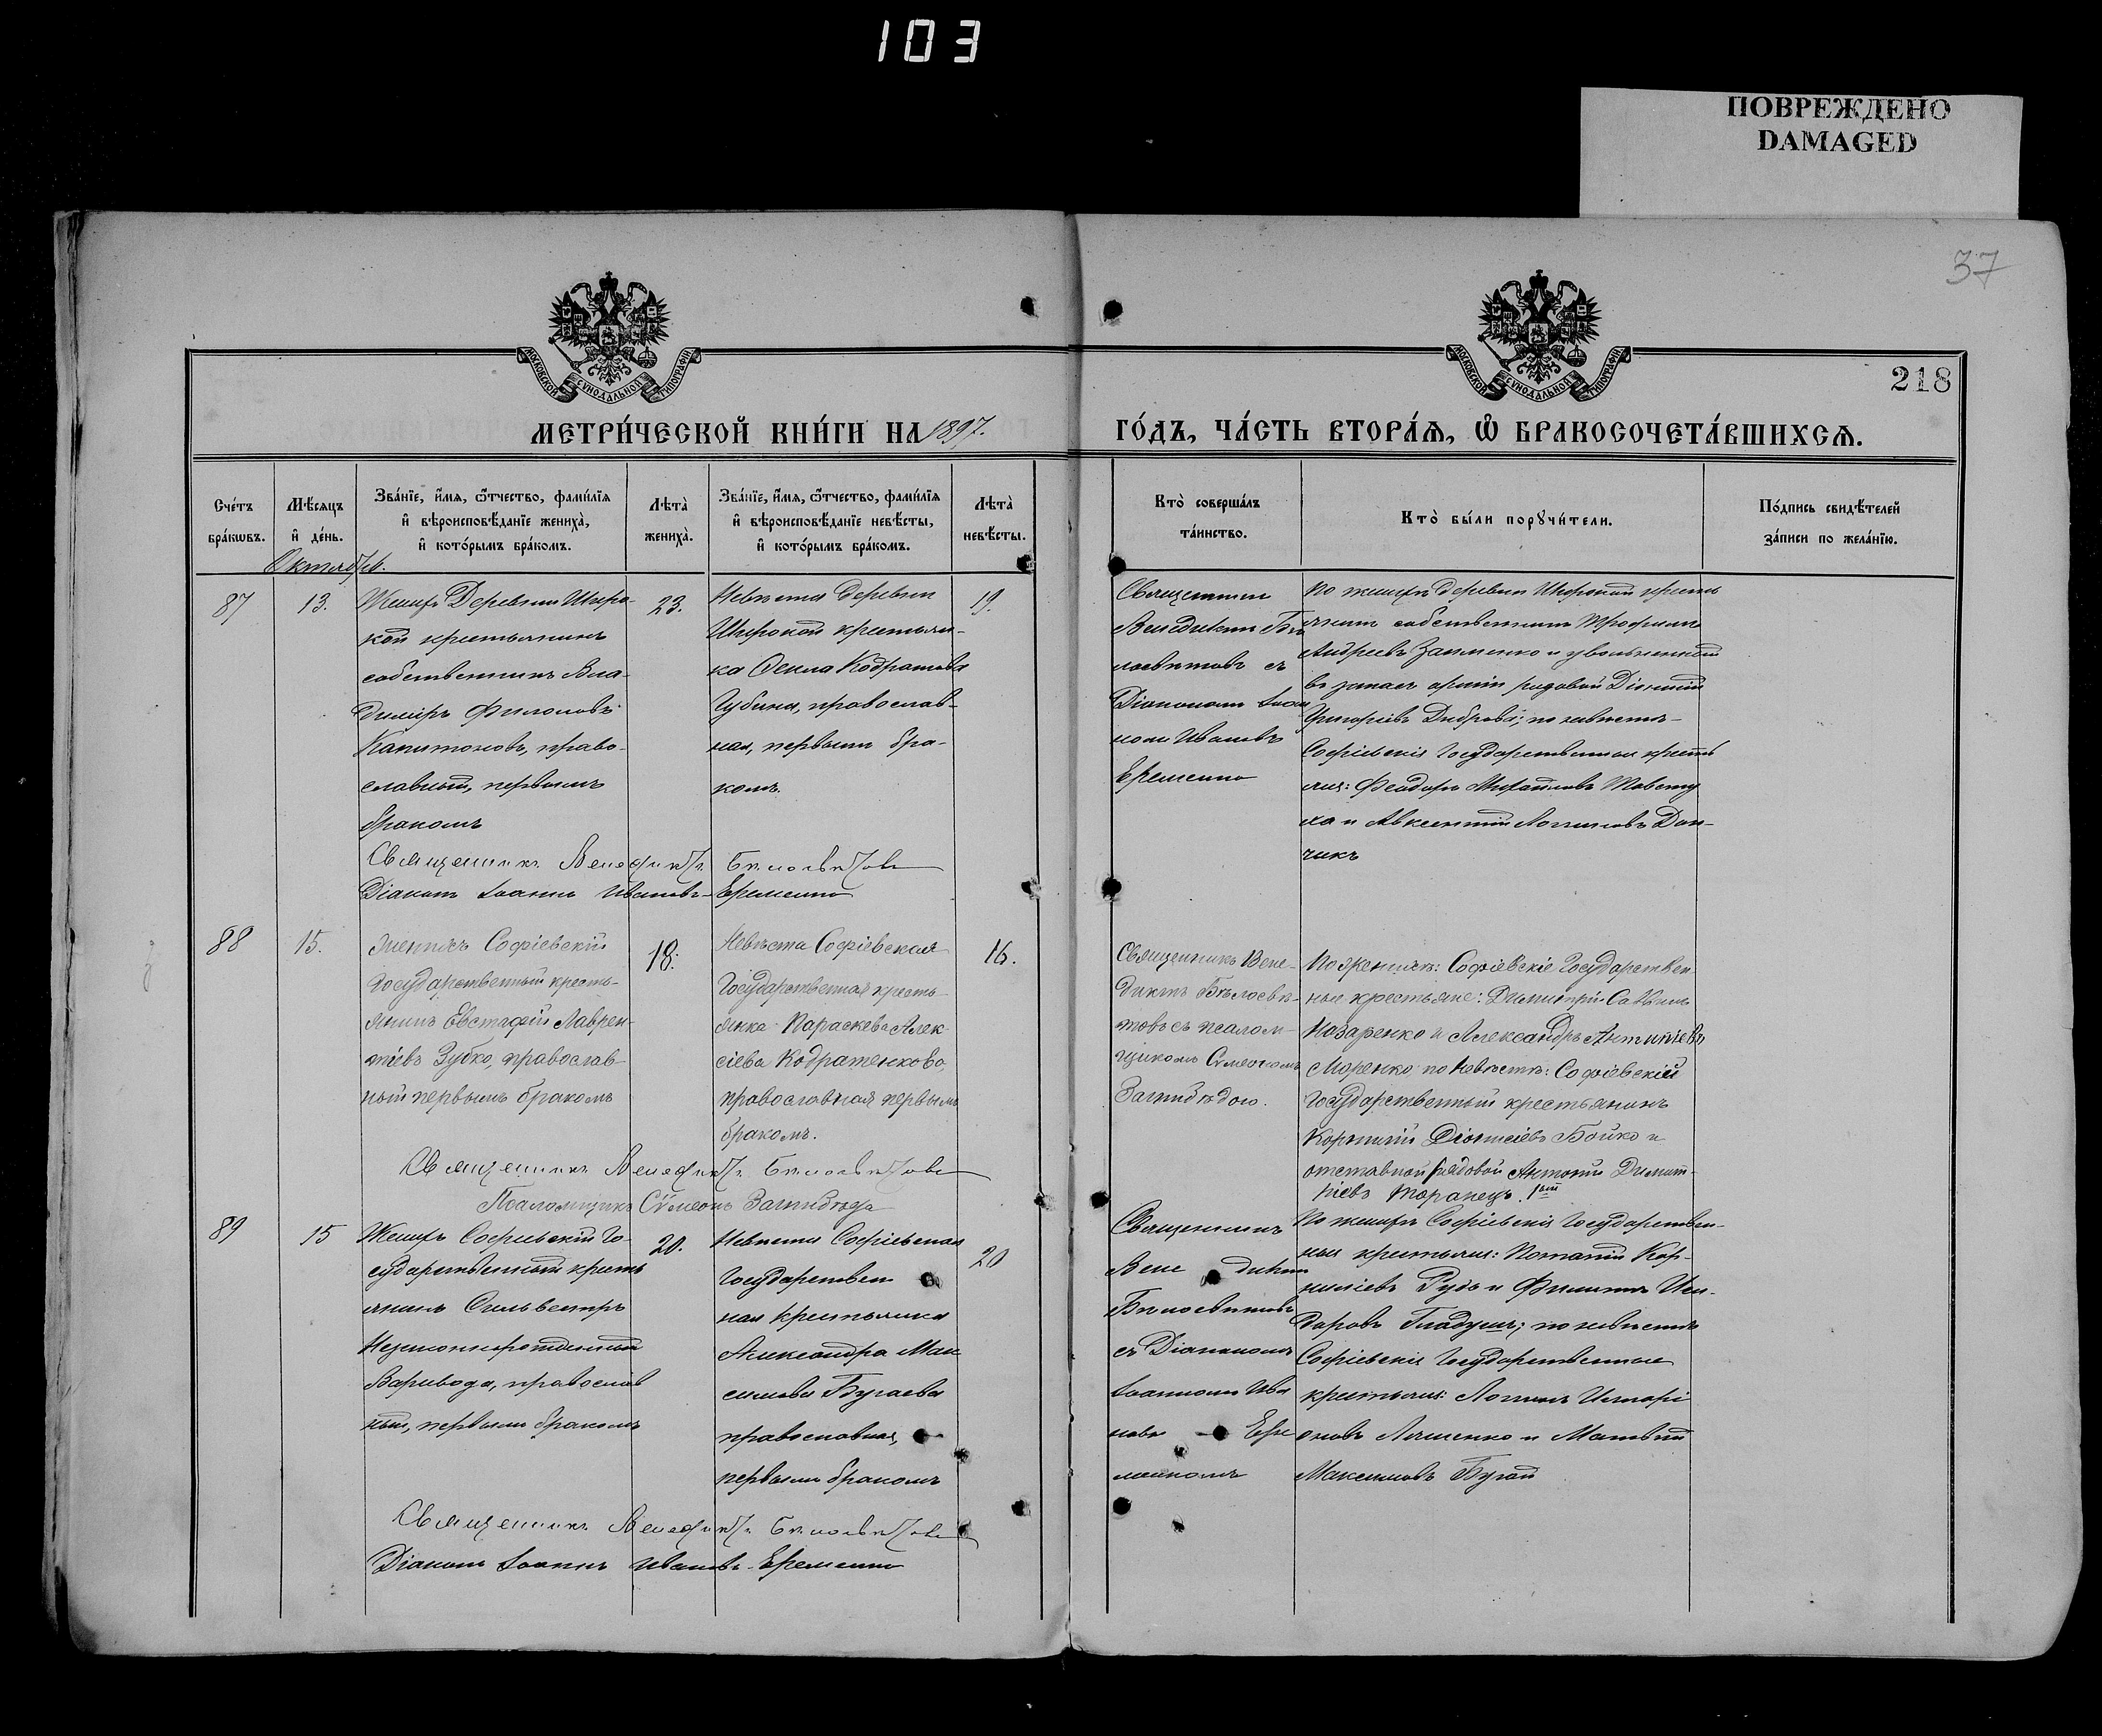 103
ПОВРЕЖДЕНО
DAMAGED
37
МОСКОВСКОЙ СѴНОДАЛЬНОЙ ТИПОГРАФІИ
МОСКОВСКОЙ СѴНОДАЛЬНОЙ ТИПОГРАФІИ
218
МЕТРИ́ЧЕСКОЙ КНИ́ГИ НА 1897.
ГО́ДЪ, ЧА́СТЬ ВТОРА́Я, Ѡ҆ БРАКОСОЧЕТА́ВШИХСЯ.
Сче́тъ
бра́кѡвъ.
Мѣ́сяцъ
и҆ де́нь.
Зва́нїе, и҆́мя, ѻ҆́тчество, фами́лїя
и҆ вѣроисповѣ́данїе жениха̀,
и҆ кото́рымъ бра́комъ.
Лѣта̀
жениха̀.
Зва́нїе, и҆́мя, ѻ҆́тчество, фами́лїя
и҆ вѣроисповѣ́данїе невѣ́сты,
и҆ кото́рымъ бра́комъ.
Лѣта̀
невѣ́сты.
Кто̀ соверша́лъ
та́инство.
Кто̀ бы́ли порꙋчи́тели.
По́дпись свидѣ́телей
за́писи по жела́нїю.
Октябрь.
87
13.
Женихъ Деревни Широ-
кой крестьянинъ
собственникъ Вла-
димiръ Филоновъ
Капитоновъ, право-
славный, первымъ
бракомъ
23.
Невѣста деревни
Широкой крестьян-
ка Ѳекла Кодратова
Губина, православ-
ная, первымъ бра-
комъ.
19.
Священникъ
Венедиктъ Бѣ
лосвѣтовъ съ
Дiакономъ Iоан
номъ Ивановъ
Еременко
По женихѣ деревни Широкой кресть
янинъ собственникъ Трофимъ
Андреевъ и увольненный
въ запасъ армiи рядовой Дiонисiй
Григорiевъ Диброва; по невѣстѣ
Софiевскiе Государственные кресть
яне: Феодоръ Михайловъ Товсту
ха и Авксентiй Логиновъ Дон-
чикъ
Священникъ Венедиктъ Бѣлосвѣтовъ
Дiаконъ Iоаннъ Ивановъ-Еременко
88
15.
Женихъ Софiевскiй
Государственный кресть-
янинъ Евстафiй Лаврен-
тiевъ Зубко, православ-
ный первымъ бракомъ
18.
Невѣста Софiевская
Государственная кресть-
янка Параскева Алек-
сiева Кодратенкова,
православная первымъ
бракомъ.
16.
Священникъ Вене-
диктъ Бѣлосвѣ-
товъ съ псалом-
щикомъ Сѵмеономъ
Загнибѣдою.
По женихѣ: Софiевскiе Государствен
ные крестьяне: Димитрiй Саввинъ
Назаренко и Александръ Антипiевъ
Моренко по Невѣстѣ: Софiевскiй
Государственный крестьянинъ
Корнилiй Дiонисiевъ Бойко и
отставной рядовой Антонiй Димит-
рiевъ Торанецъ. 1ый
Священникъ Венедиктъ Бѣлосвѣтовъ
Псаломщикъ Сѵмеонъ Загнибѣда
89
15
Женихъ Софiевскiй Го-
сударственный кресть
янинъ Сильвестръ
Варивода, православ
ный, первымъ бракомъ
20.
Невѣста Софiевская
Государствен
ная крестьянка
Александра Мак
симова Бугаева
православная,
первымъ бракомъ
20
Священникъ
Вене диктъ
Бѣлосвѣтовъ
съ Дiакономъ
Iоанномъ Ива
новъ - Ере
менкомъ
По женихѣ Софiевскiе Государствен-
ные крестьяне: Потапiй Кор-
нилiевъ Рудь и Филиппъ Иси-
доровъ Гладушъ; по невѣстѣ
Софiевскiе Государственные
крестьяне: Логинъ Иларi
оновъ Ляшенко и Матвѣй
Максимовъ Бугай
Священникъ Венедиктъ Бѣлосвѣтовъ
Дiаконъ Iоаннъ Ивановъ-Еременко